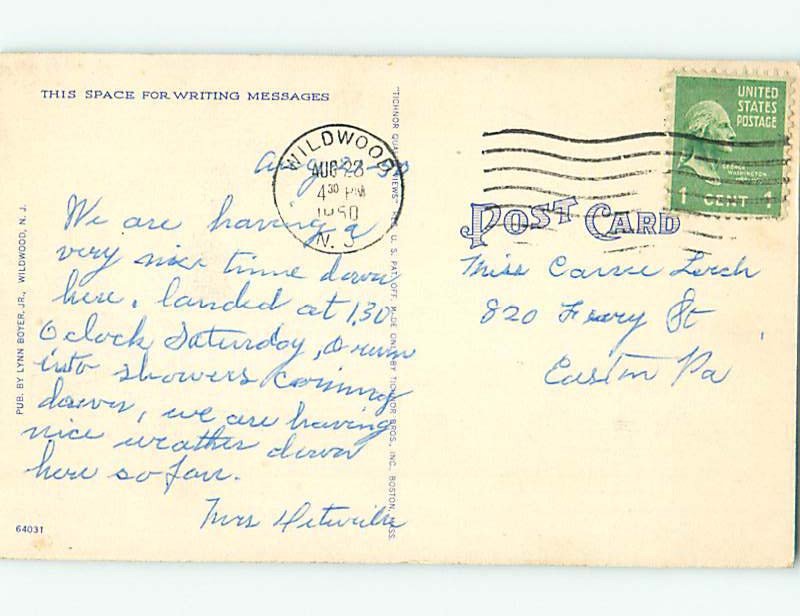 THIS SPACE FOR WRITING MESSAGES
WILDWOOD
AUG 28
4 30 PM
1950
N. J.
We are having a
very nice time down
here, landed at 1.30
O clock Saturday, run
into showers coming
down, we are having
nice weather down
here so far.
Mrs
PUB. BY LYNN BOYER, JR., WILDWOOD, N. J.
64031
"TICHNOR QUALITY VIEWS" REG. U. S. PAT. OFF. MADE ONLY BY TICHNOR BROS., INC., BOSTON, MASS.
UNITED
STATES
POSTAGE
GEORGE
WASHINGTON
1 CENT 1
POST CARD
Miss Carrie Lerch
820 Ferry St
Easton Pa